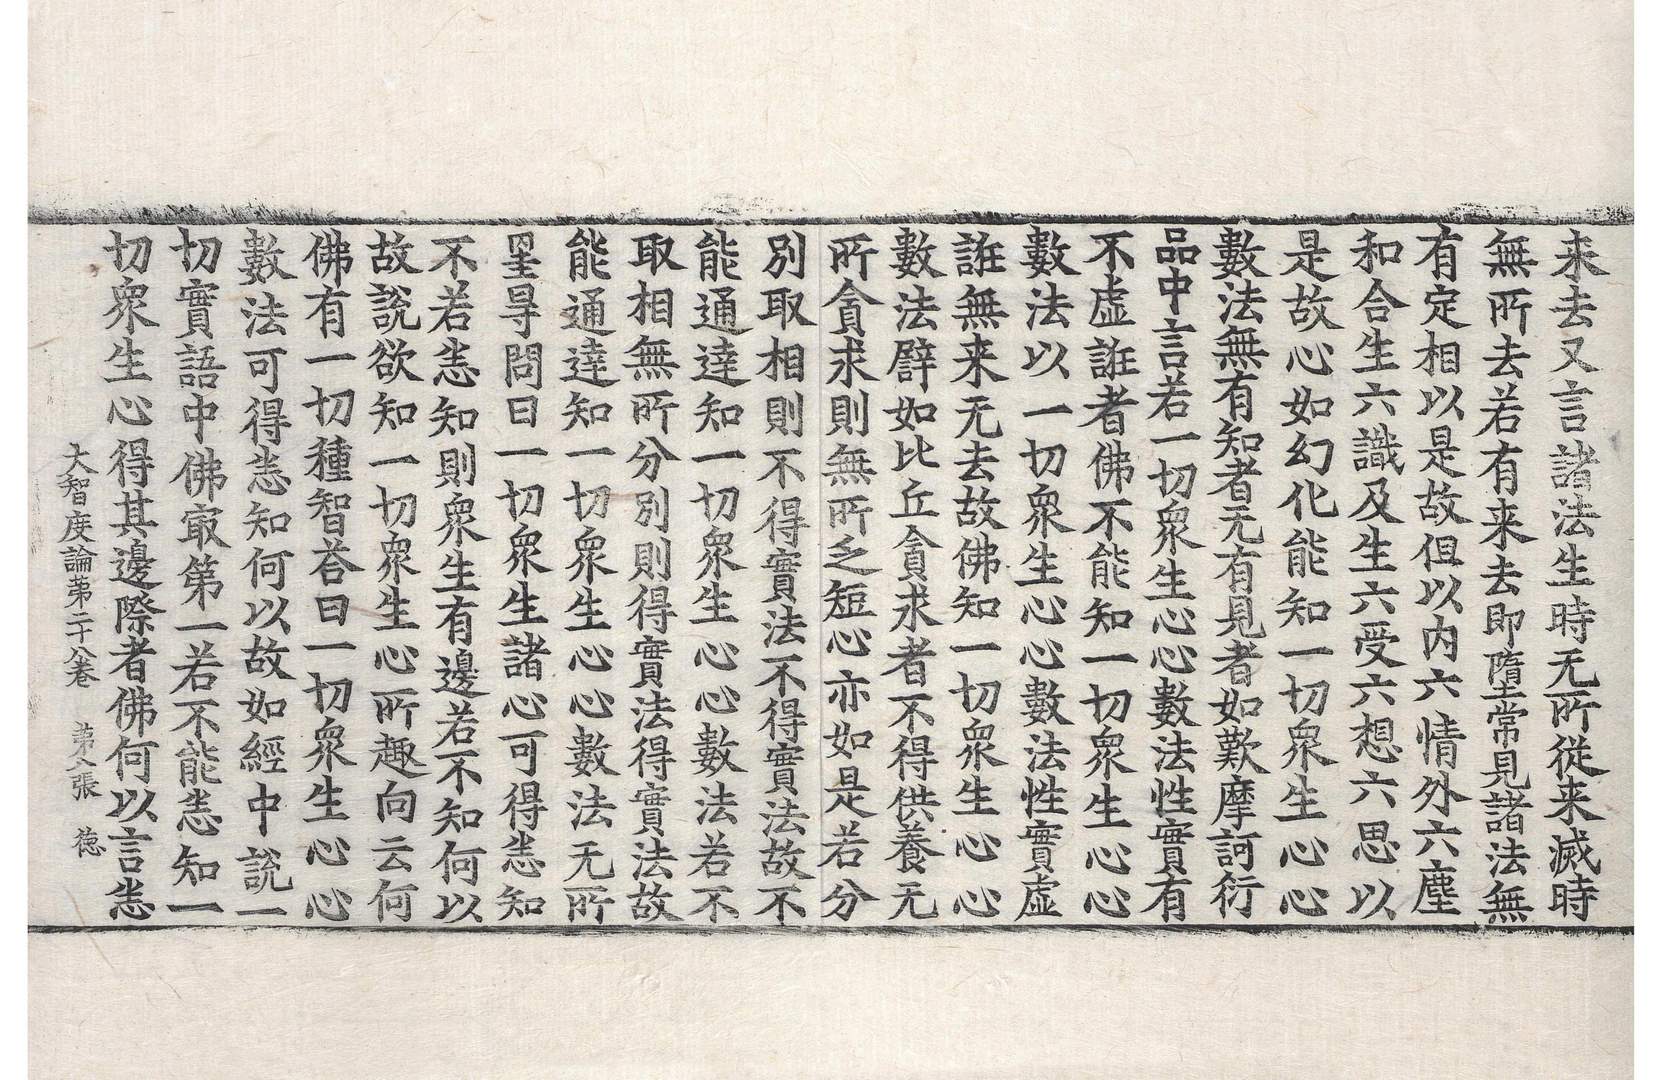 来去又言諸法生時无所從来滅時
無所去若有来去即墮常見諸法無
有定相以是故但以内六情外六塵
和合生六識及生六受六想六思以
是故心如幻化能知一切衆生心心
數法無有知者无有見者如歎摩訶衍
品中言若一切衆生心心數法性實有
不虚誑者佛不能知一切衆生心心
數法以一切衆生心心數法性實虚
誑無来无去故佛知一切衆生心心
數法譬如比丘貪求者不得供養无
所貪求則無所乏短心亦如是若分
別取相則不得實法不得實法故不
能通達知一切衆生心心數法若不
取相無所分別則得實法得實法故
能通達知一切衆生心心數法无所
罣㝵問曰一切衆生諸心可得悉知
不若悉知則衆生有邊若不知何以
故說欲知一切衆生心所趣向云何
佛有一切種智荅曰一切衆生心心
數法可得悉知何以故如經中說一
切實語中佛㝡第一若不能悉知一
切衆生心得其邊際者佛何以言悉
大智度論第二十八卷 第 張 德